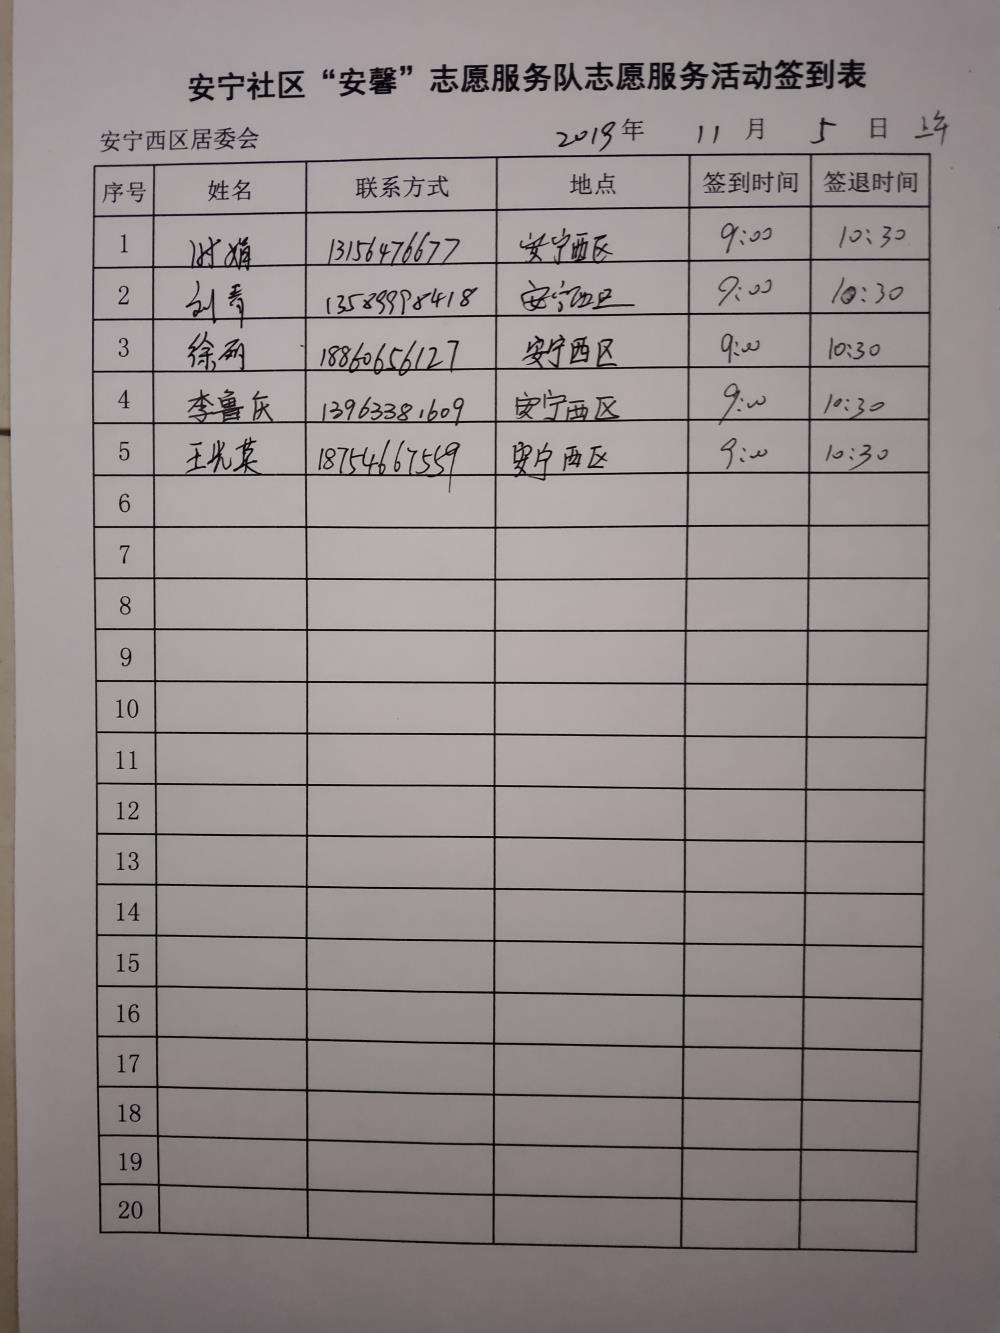 安宁社区“安馨”志愿服务队志愿服务活动签到表
安宁西区居委会 2019年 11 月 5 日 上午
序号 姓名 联系方式 地点 签到时间 签退时间
1 时娟 13156476677 安宁西区 9:00 10:30
2 刘青 13589998418 安宁西区 9:00 10:30
3 徐丽 18860656127 安宁西区 9:00 10:30
4 李鲁庆 13963381609 安宁西区 9:00 10:30
5 王光英 18754667559 安宁西区 9:00 10:30
6
7
8
9
10
11
12
13
14
15
16
17
18
19
20